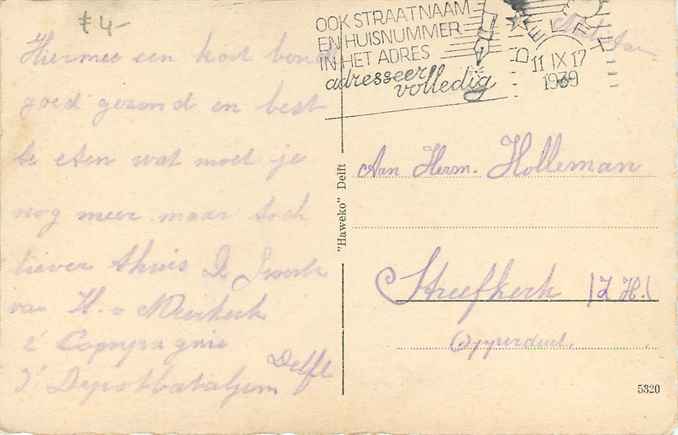 f 4-
Hiermee een kort
goed gezond en best
te eten wat moet je
nog meer maar toch
liever thuis
van H. v Meerkerk
2e Compagnie
3e Depotbataljon Delft
OOK STRAATNAAM
EN HUISNUMMER
IN HET ADRES
adresseer
volledig
DELFT
11 IX 17
1939
"Haweko" Delft
Aan Herm. Holleman
Streefkerk (Z.H.)
Opperduit.
5320